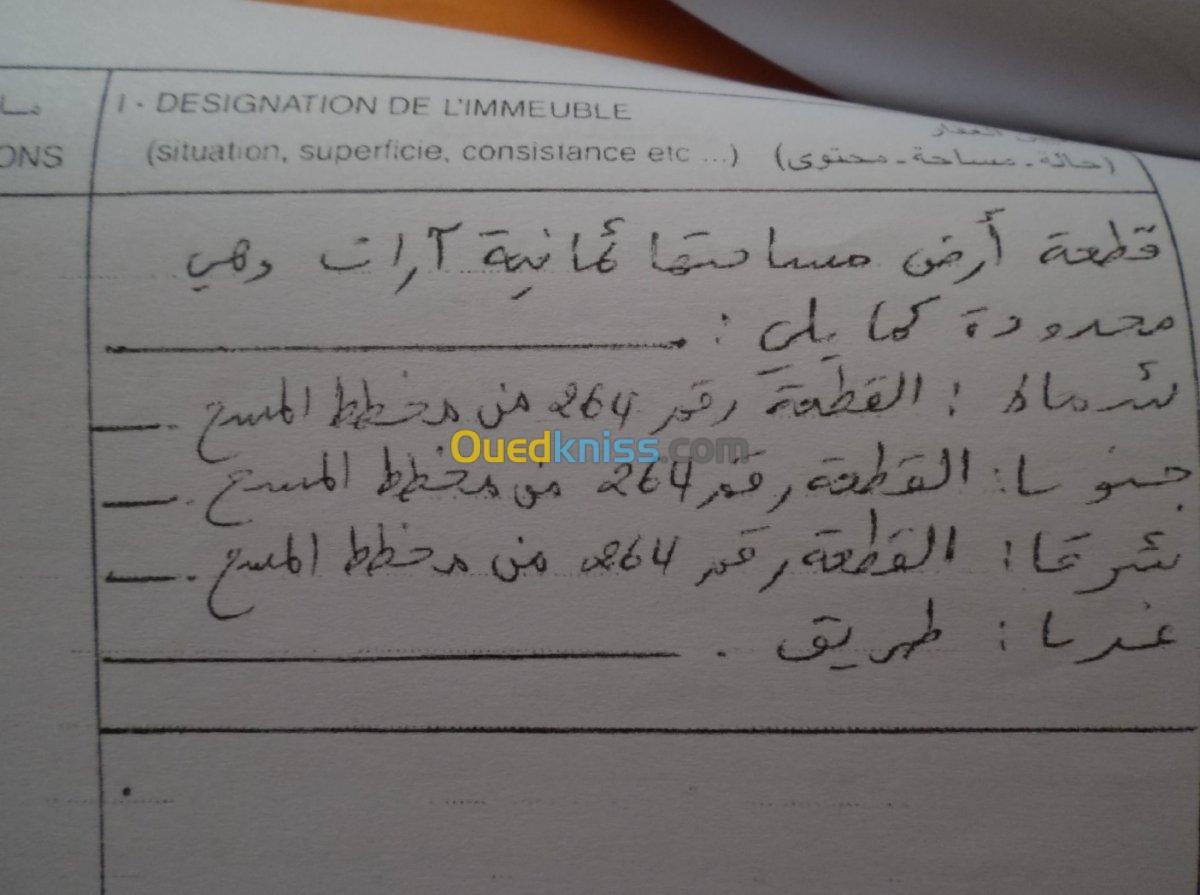 I - DESIGNATION DE L'IMMEUBLE
ONS
(situation, superficie, consistance etc ...) (حالة - مساحة - محتوى)
العقار
قطعة أرض مساحتها ثمانية آرات وهي
محدودة كما يلي :
شمالا : القطعة رقم 264 من مخطط المسح .
جنوبا : القطعة رقم 264 من مخطط المسح .
شرقا : القطعة رقم 264 من مخطط المسح .
غربا : طريق .
Ouedkniss.com